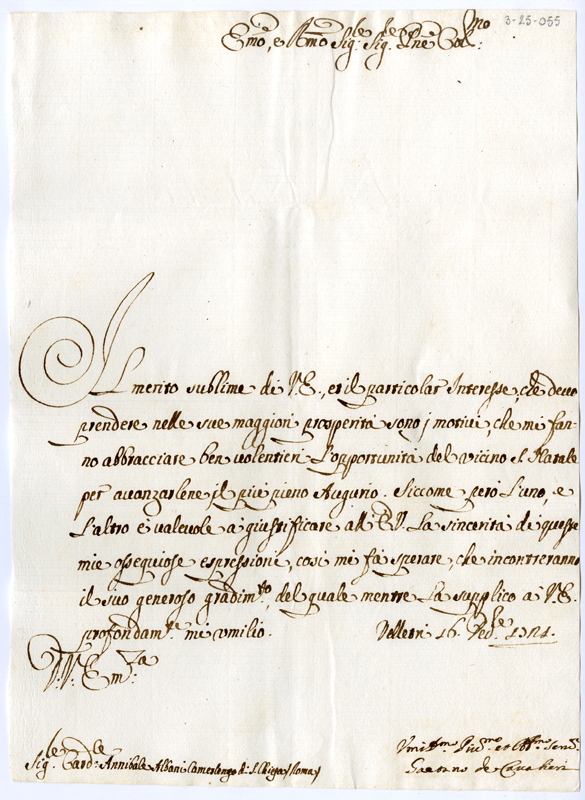 3-25-055
Emo, e Rmo Sig.le Sig.le Pne Colmo:
Il merito sublime di V.E., et il particolar Interesse, che devo
prendere nelle sue maggiori prosperità sono j motivi, che mi fan-
no abbracciare ben volentieri l'opportunità del vicino S. Natale
per avanzarlene il più pieno Augurio. Siccome però l'uno, e
l'altro è valevole à giustificare all'E.V. la sincerità di queste
mie ossequiose espressioni, così mi fà sperare, che incontreranno
il suo generoso gradim.to, del quale mentre la supplico à V.E.
profondam.te mi umilio. Velletri 16.
V.V. Em.za
Sig.le Card.le Annibale Albani Camerlengo di S. Chiesa / Roma /
Gaetano de